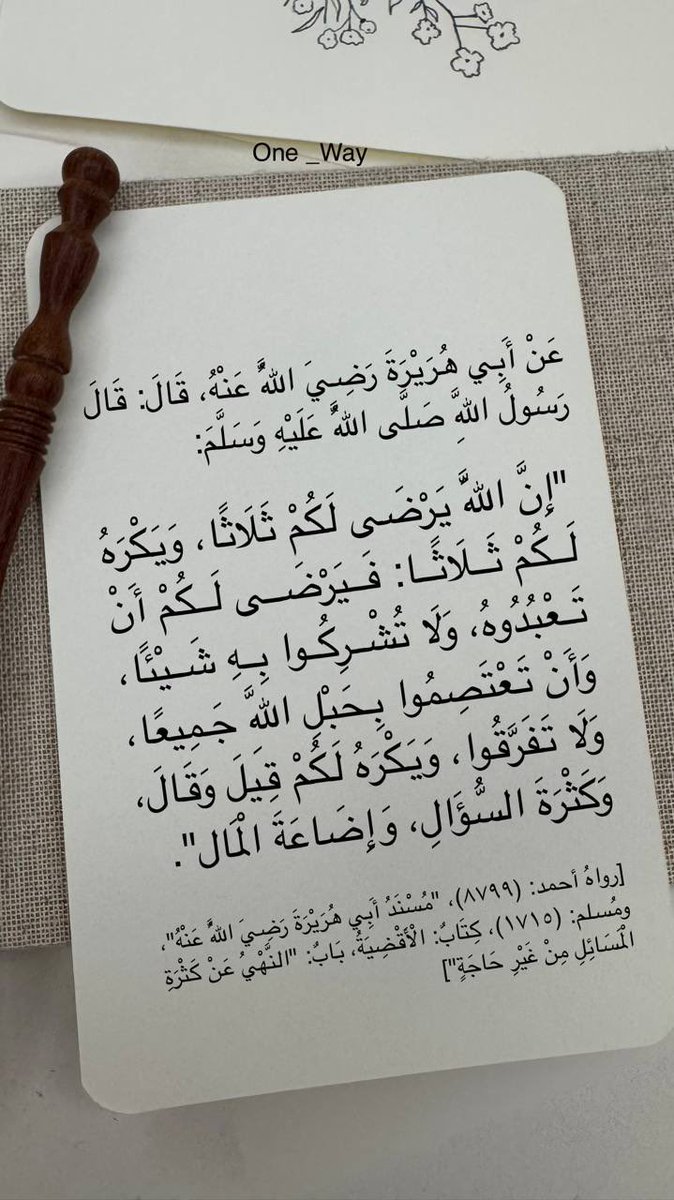 One _Way
عَنْ أَبِي هُرَيْرَةَ رَضِيَ اللهُ عَنْهُ، قَالَ: قَالَ
رَسُولُ اللهِ صَلَّى اللهُ عَلَيْهِ وَسَلَّمَ:
"إِنَّ اللهَ يَرْضَى لَكُمْ ثَلَاثًا، وَيَكْرَهُ
لَكُمْ ثَلَاثًا: فَيَرْضَى لَكُمْ أَنْ
تَعْبُدُوهُ، وَلَا تُشْرِكُوا بِهِ شَيْئًا،
وَأَنْ تَعْتَصِمُوا بِحَبْلِ اللهِ جَمِيعًا،
وَلَا تَفَرَّقُوا، وَيَكْرَهُ لَكُمْ قِيلَ وَقَالَ،
وَكَثْرَةَ السُّؤَالِ، وَإِضَاعَةَ الْمَالِ".
[رواهُ أحمد: (٨٧٩٩)، "مُسْنَدُ أَبِي هُرَيْرَةَ رَضِيَ اللهُ عَنْهُ"،
ومُسلم: (١٧١٥)، كِتَابُ: الْأَقْضِيَةُ، بَابُ: "النَّهْيُ عَنْ كَثْرَةِ
الْمَسَائِلِ مِنْ غَيْرِ حَاجَةٍ"]